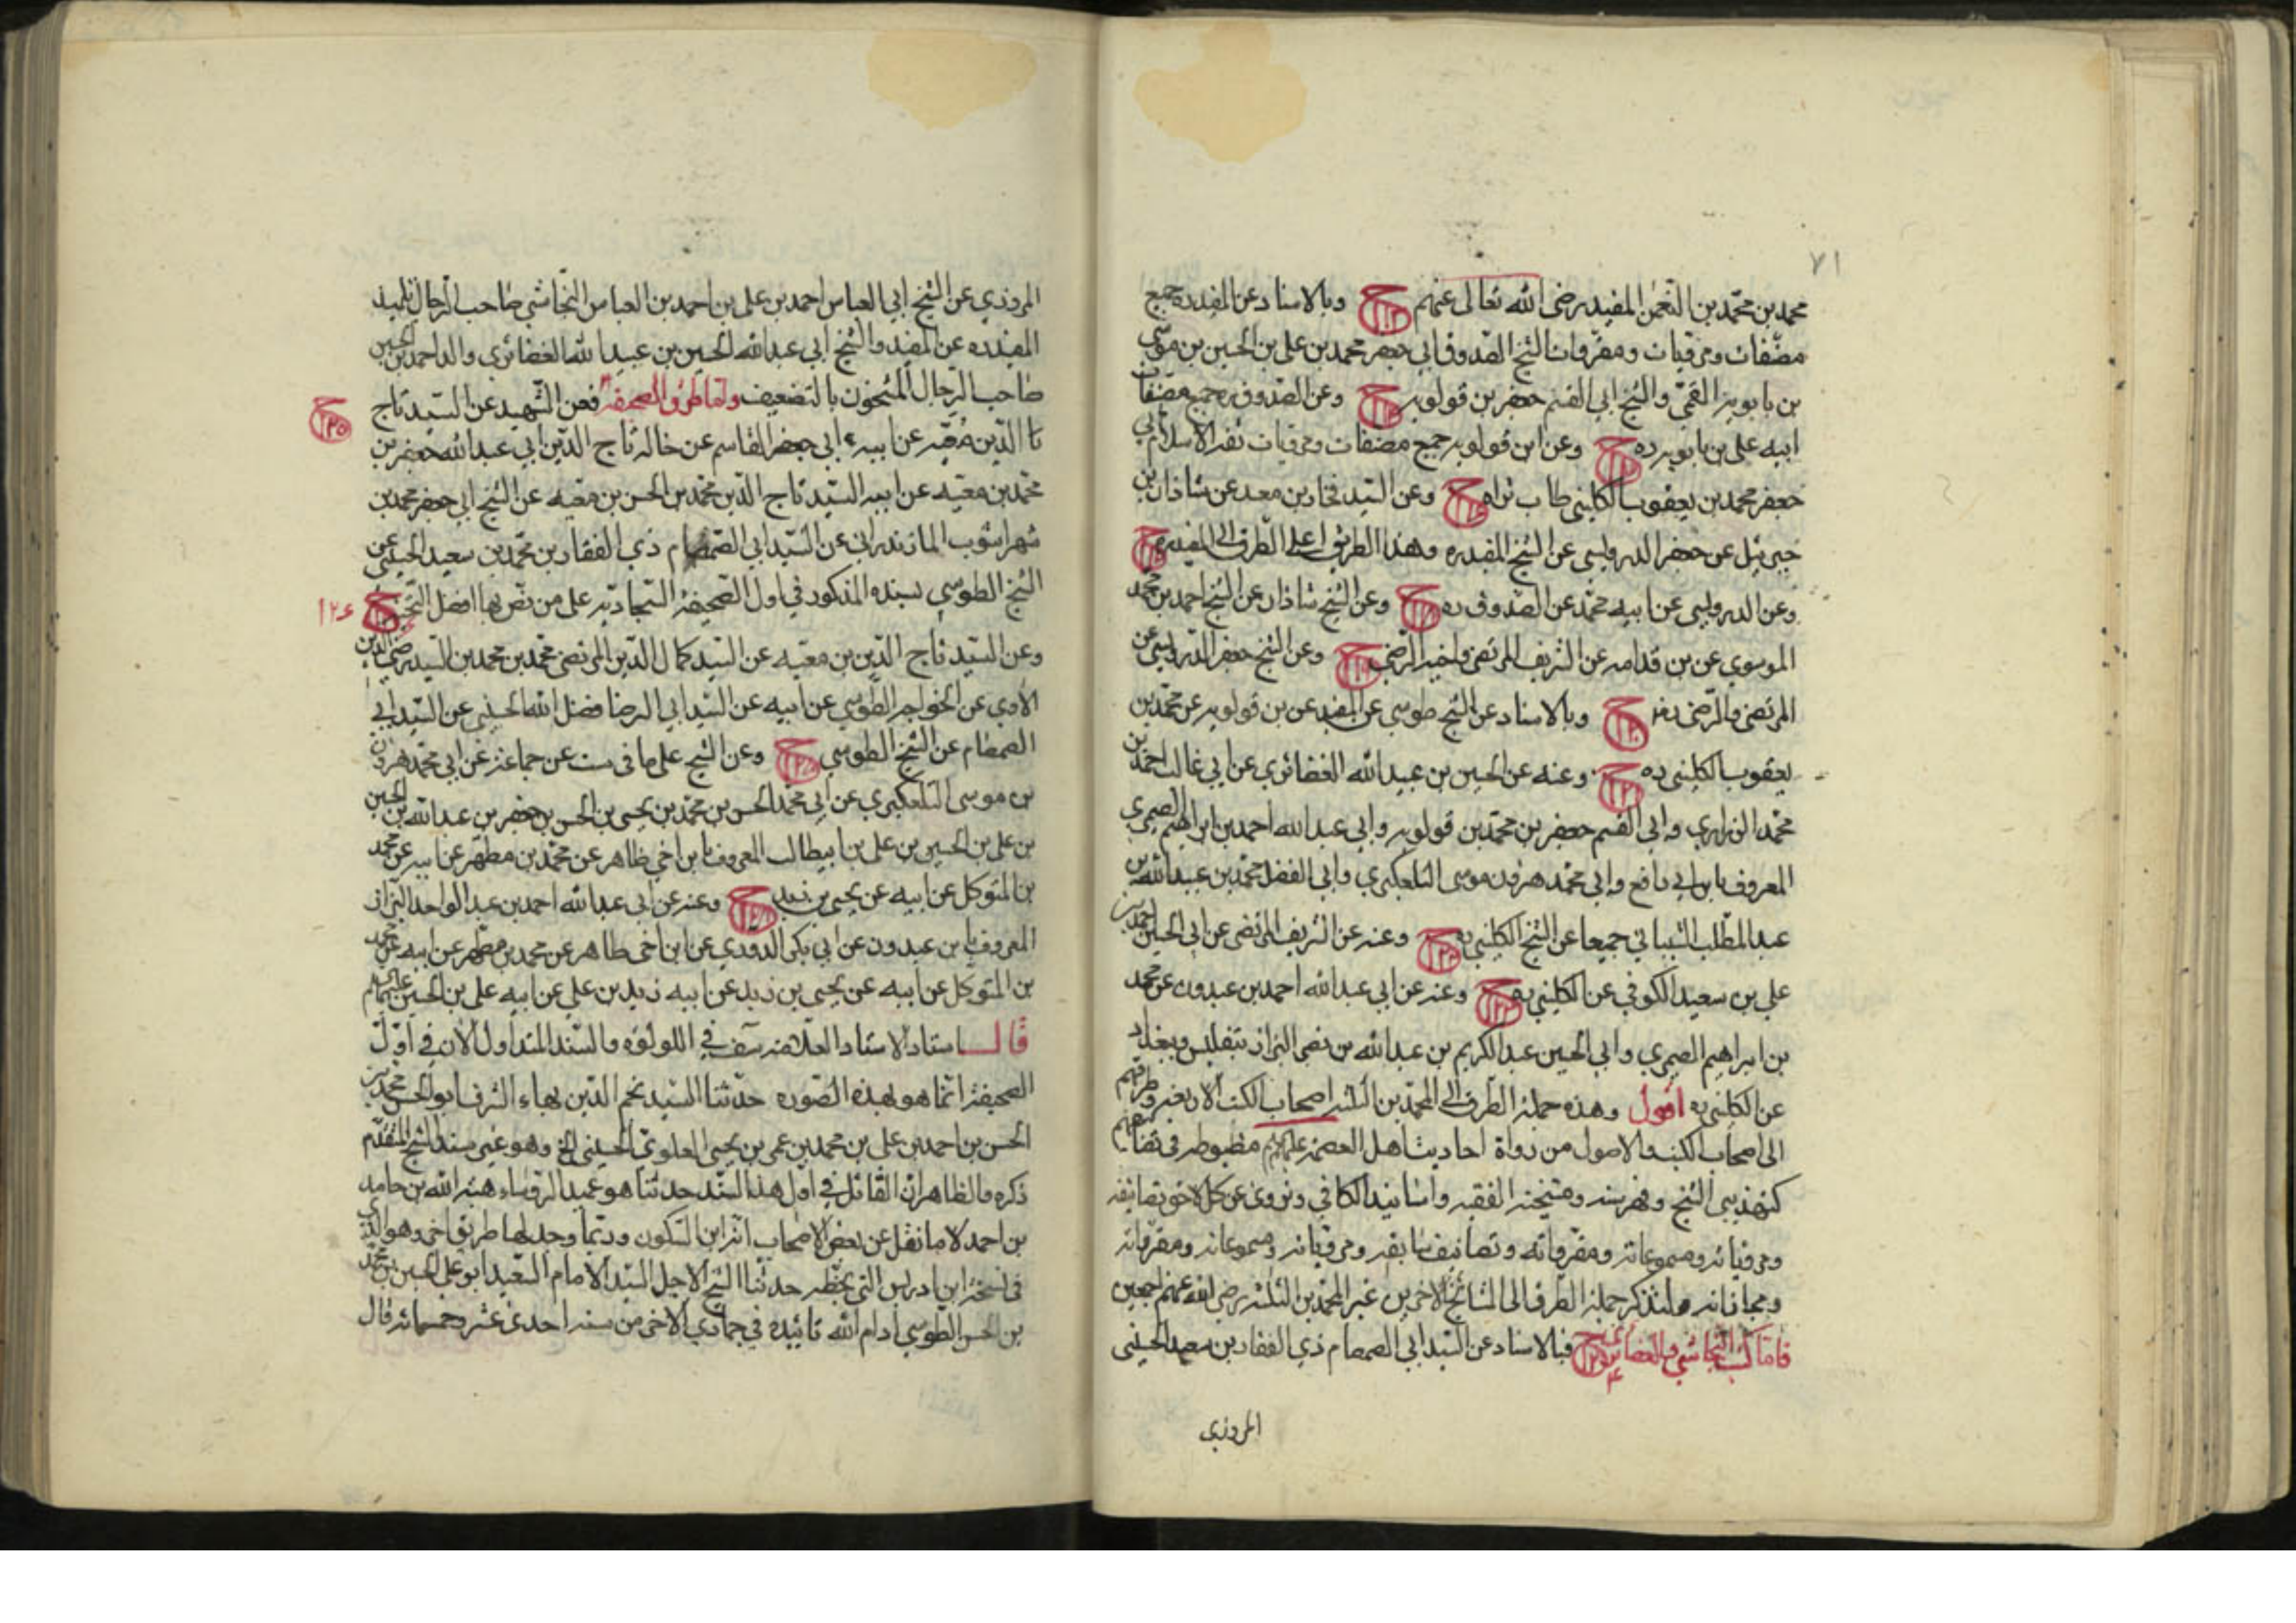 ٧١
محمد بن محمد بن النعمن المفيد رضى الله تعالى عنهم ح ١١٣ وبالاسناد عن المفيد ره جميع
مصنفات ومرويات ومقروات الشيخ الصدوق ابي جعفر محمد بن علي بن الحسين بن موسى
بن بابويه القمي والشيخ ابي القسم جعفر بن قولويه ح وعن الصدوق ره جميع مصنفات
ابيه علي بن بابويه ره ح وعن ابن قولويه جميع مصنفات ومرويات ثقة الاسلام ابي
جعفر محمد بن يعقوب الكليني طاب ثراه ح وعن السيد فخار بن معد عن شاذان بن
جبرئيل عن جعفر الدرويسي عن الشيخ المفيد ره وهذا الطريق اعلى الطرق الى المفيد ره ح
وعن الدرويسي عن ابيه محمد عن الصدوق ره ح وعن الشيخ شاذان عن الشيخ احمد بن محمد
الموسوي عن بن قدامه عن الشريف المرتضى واخيه الرضي ح وعن الشيخ جعفر الدرويسي عن
المرتضى والرضى ح ١٢٠ وبالاسناد عن الشيخ طوسي عن المفيد عن بن قولويه عن محمد بن
يعقوب الكليني ره ح ١٢١ وعنه عن الحسين بن عبيد الله الغضائري عن ابي غالب احمد بن
محمد الزراري وابي القسم جعفر بن محمد بن قولويه وابي عبد الله احمد بن ابراهيم الصيمري
المعروف بابن ابي رافع وابي محمد هرون بن موسى التلعكبري وابي الفضل محمد بن عبيد الله بن
عبد المطلب الشيباني جميعا عن الشيخ الكليني ره ح وعنه عن الشريف المرتضى عن ابي الحسين احمد بن
علي بن سعيد الكوفي عن الكليني ره ح ١٢٣ وعنه عن ابي عبد الله احمد بن عبدون عن محمد
بن ابراهيم الصيمري وابي الحسين عبد الكريم بن عبد الله بن نصر البزاز بتفليس وبغداد
عن الكليني ره اقول وهذه جملة الطرق الى المحمدين الثلثة اصحاب الكتب الاربعة وطرقهم
الى اصحاب الكتب والاصول من رواة احاديث اهل العصمة عليهم مضبوطه في
كتهذيبي الشيخ وفهرسته ومشيخة الفقيه واسانيد الكافي ونروى عن كل لاحق تصانيفه
ومروياته ومسموعاته ومقرواته وتصانيف سابقه ومروياته ومسموعاته ومقرواته
ومجازاته ولنذكر جملة الطرق الى المشائخ الاخرين غير المحمدين الثلثة رضي الله عنهم اجمعين
فاما كتب النجاشي والغضائري ح ١٢٤ فبالاسناد عن السيد ابي الصمصام ذي الفقار بن معبد الحسيني
المروزي
المروزي عن الشيخ ابي العباس احمد بن علي بن احمد بن العباس النجاشي صاحب الرجال تلميذ
المفيد ره عن المفيد والشيخ ابي عبد الله الحسين بن عبيد الله الغضائري والد احمد بن الحسين
صاحب الرجال المشحون بالتضعيف واما طرق الصحيفة فعن الشهيد عن السيد تاج ح ١٢٥
الدين معيه عن ابيه ابي جعفر القاسم عن خاله تاج الدين ابي عبد الله جعفر بن
محمد بن معيه عن ابيه السيد تاج الدين محمد بن الحسن بن معيه عن الشيخ ابي جعفر محمد بن
شهراشوب المازندراني عن السيد ابي الصمصام ذي الفقار بن محمد بن سعيد الحسيني عن
الشيخ الطوسي بسنده المذكور في اول الصحيفة السجاديه على من نص بها افضل التحية ح ١٢٤
وعن السيد تاج الدين بن معيه عن السيد كمال الدين المرتضى محمد بن محمد بن السيد رضي الدين
الاوي عن الخواجه الطوسي عن ابيه عن السيد ابي الرضا فضل الله الحسيني عن السيد ابي
الصمصام عن الشيخ الطوسي ح وعن الشيخ على ما في ست عن جماعة عن ابي محمد هرون
بن موسى التلعكبري عن ابي محمد الحسن بن محمد بن يحيى بن الحسن بن جعفر بن عبد الله بن الحسين
بن علي بن الحسين بن علي بن ابيطالب المعروف بابن اخي ظاهر عن محمد بن مطهر عن ابيه عن محمد
بن المتوكل عن ابيه عن يحيى بن زيد ح وعنه عن ابي عبد الله احمد بن عبد الواحد البزاز
المعروف بابن عبدون عن ابي بكر الدوري عن ابن اخي طاهر عن محمد بن مطهر عن ابيه عن محمد
بن المتوكل عن ابيه عن يحيى بن زيد عن ابيه زيد بن علي عن ابيه علي بن الحسين
قال استاد الاستاد العلامة في اللولؤه والسند المتداول الان في اول
الصحيفة انما هو بهذه الصورة حدثنا السيد نجم الدين بهاء الشرف ابو الحسن محمد بن
الحسن بن احمد بن علي بن محمد بن عمر بن يحيى العلوي الحسيني الخ وهو غير سند الشيخ المتقدم
ذكره والظاهر ان القائل في اول هذا السند حدثنا هو عميد الرؤساء هبة الله بن حامد
بن احمد لا ما نقل عن بعض الاصحاب انه ابن السكون وربما وجد لها طريق اخر وهو الذي
في نسخة ابن ادريس التي بخطه حدثنا الشيخ الاجل السيد الامام السعيد ابو علي الحسن بن محمد
بن الحسن الطوسي ادام الله تائيده في جمادي الاخر من سنة احدى عشر وخمسمائه قال